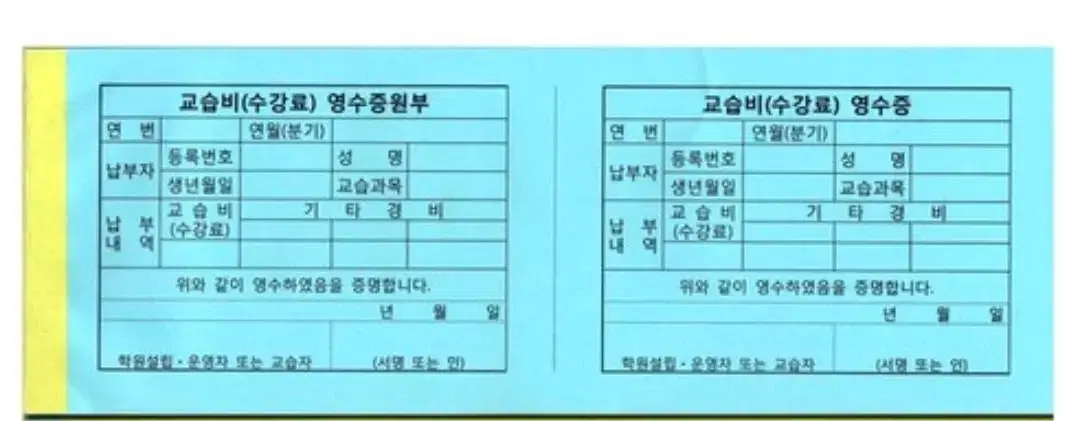 교습비(수강료) 영수증원부
연 번 연월(분기)
납부자 등록번호 성 명
생년월일 교습과목
납 부 내 역 교 습 비 (수강료) 기 타 경 비
위와 같이 영수하였음을 증명합니다.
년 월 일
학원설립·운영자 또는 교습자 (서명 또는 인)
교습비(수강료) 영수증
연 번 연월(분기)
납부자 등록번호 성 명
생년월일 교습과목
납 부 내 역 교 습 비 (수강료) 기 타 경 비
위와 같이 영수하였음을 증명합니다.
년 월 일
학원설립·운영자 또는 교습자 (서명 또는 인)